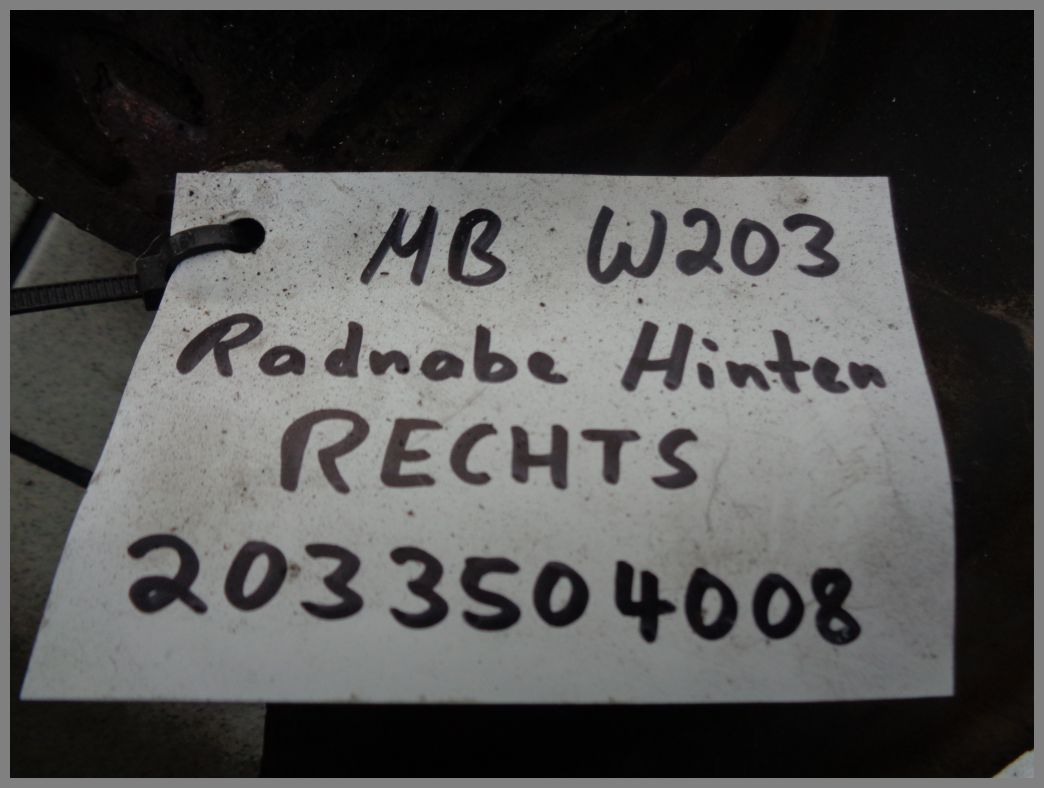 MB W203
Radnabe Hinten
RECHTS
2033504008